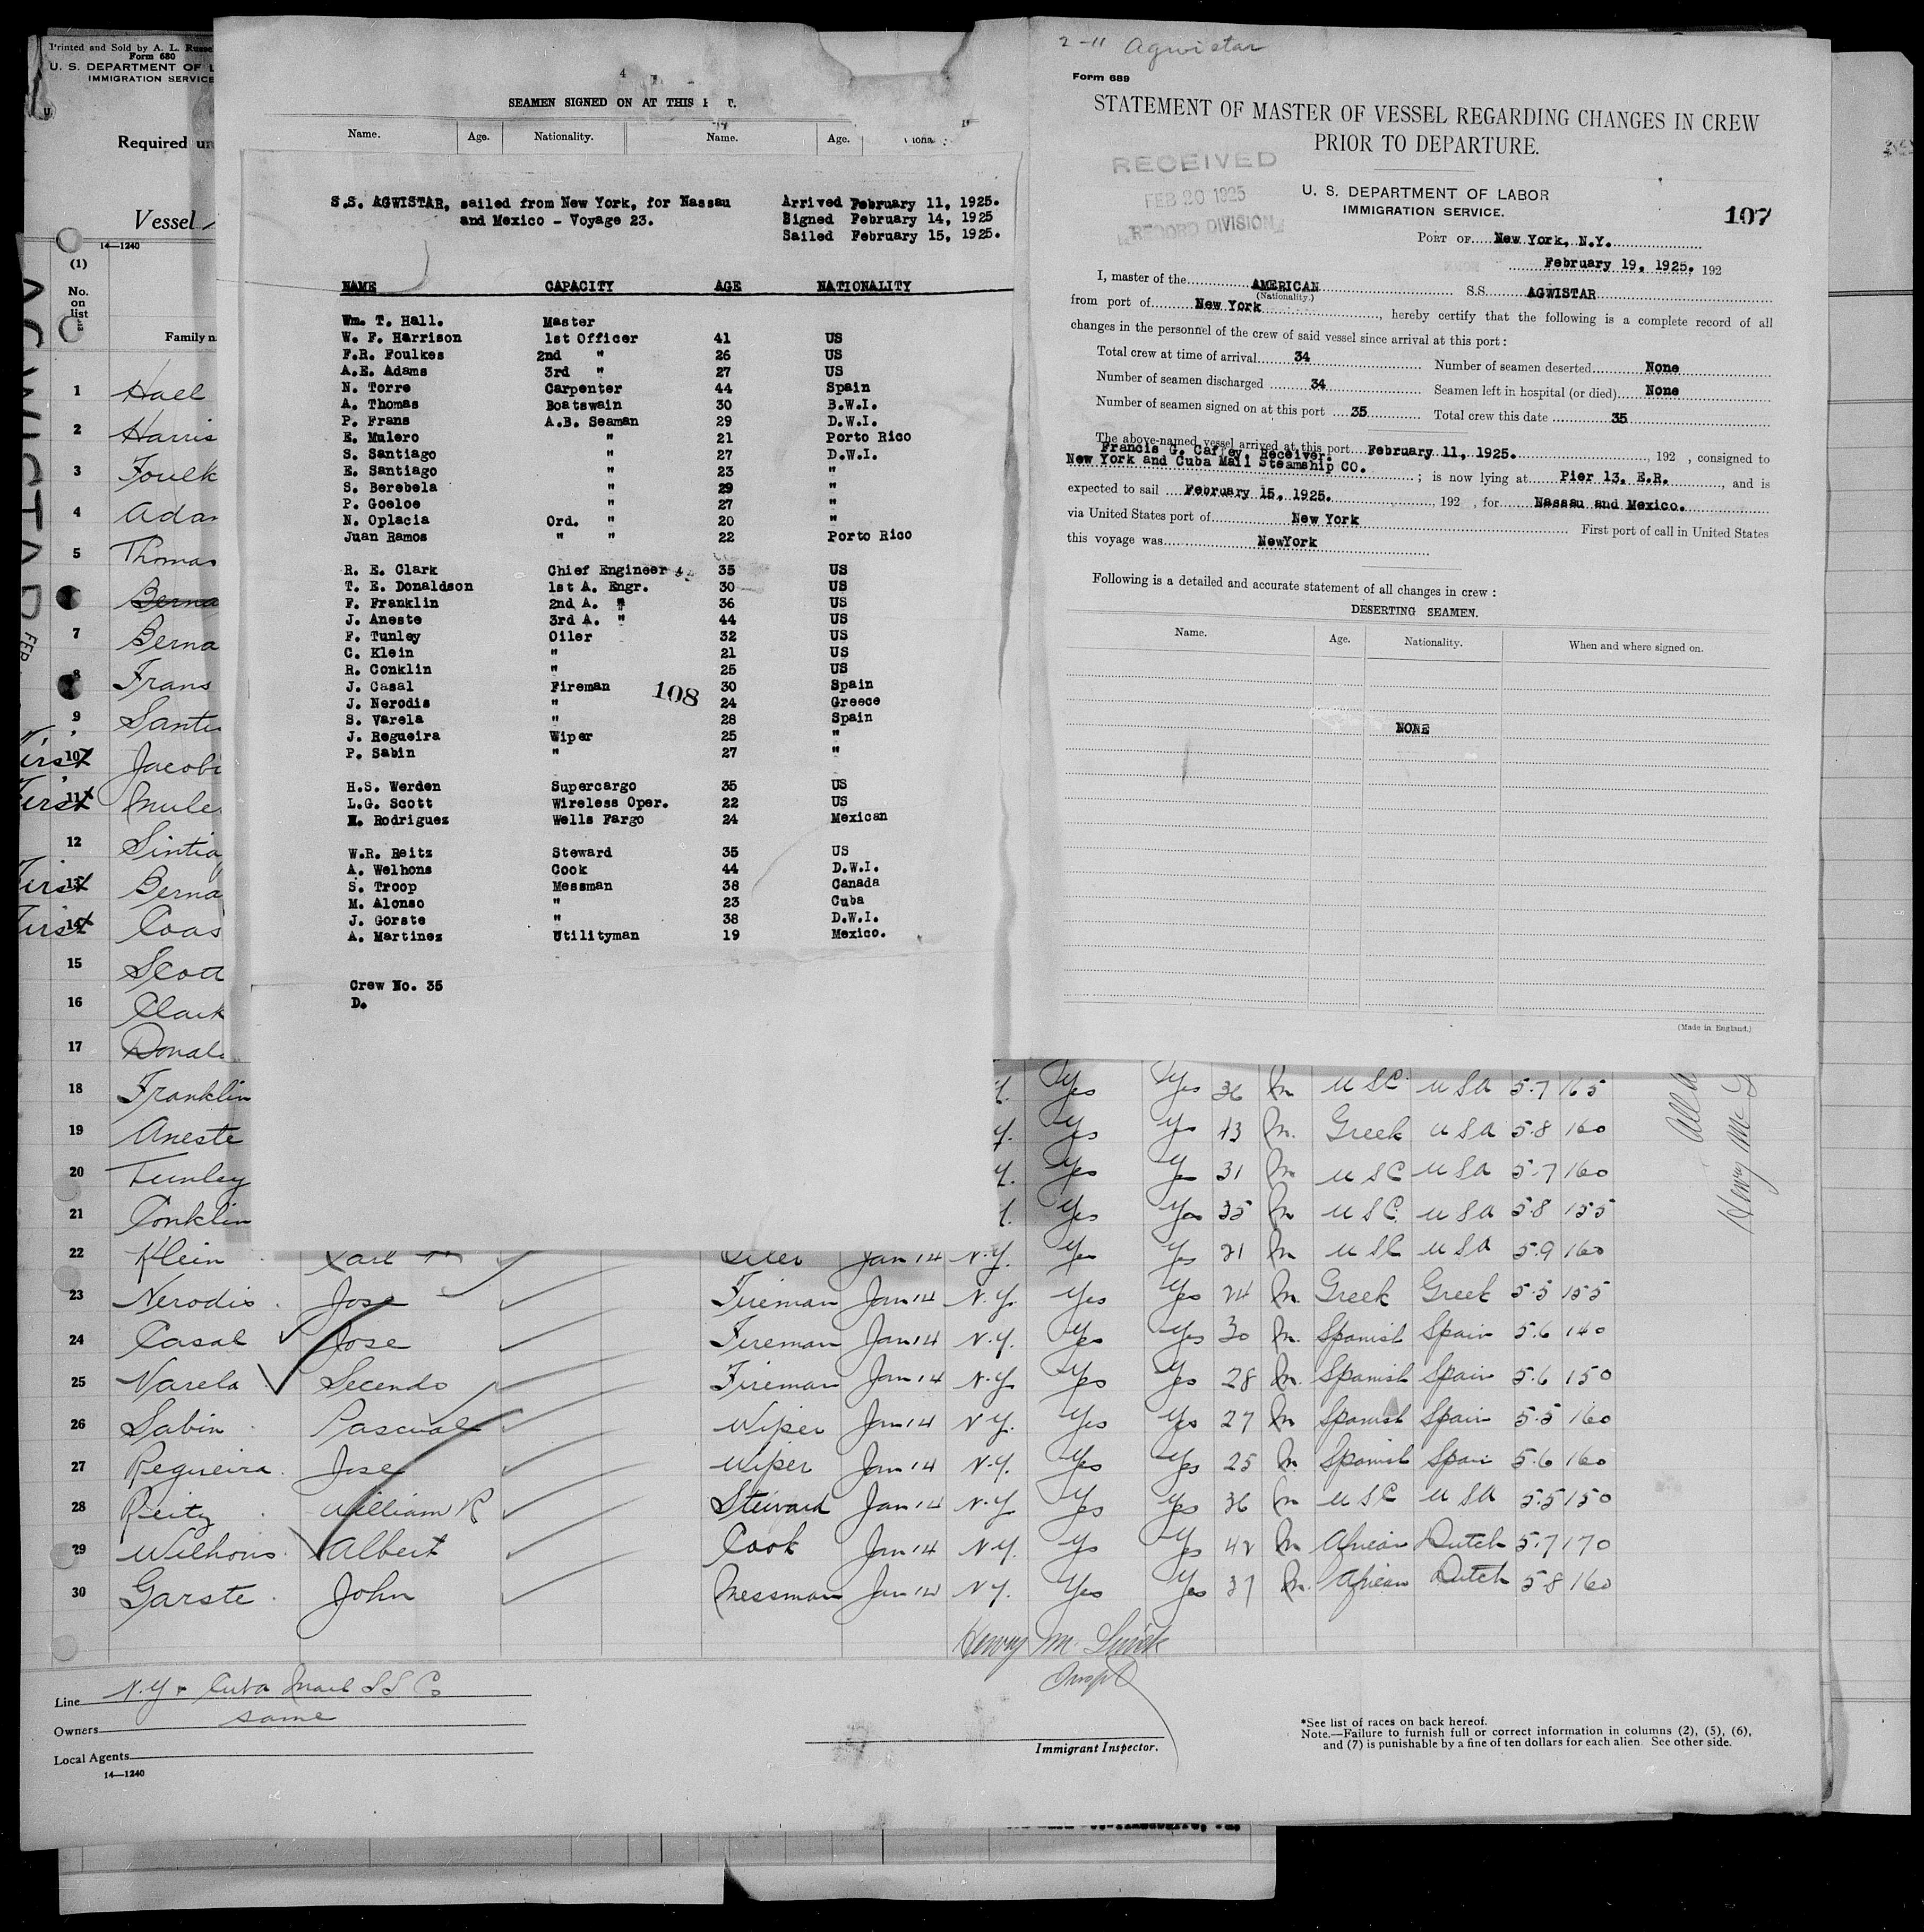 Printed and Sold by A. L. Russe
Form 680
U. S. DEPARTMENT OF L
IMMIGRATION SERVICE
Required un
Vessel
14—1240
(1)
No.
on
list
Family n
AGWISTAR
FEB
1 Hall
2 Harris
3 Foulk
4 Adam
5 Thomas
Berna
7 Berna
8 Frans
9 Santi
First 10 Jacob
First 11 Mule
12 Sintia
First 13 Berna
First 14 Coas
15 Scott
16 Clark
17 Donal
18 Franklin
19 Aneste
20 Tunley
21 Conklin
4
SEAMEN SIGNED ON AT THIS
Name. Age. Nationality. Name. Age.
S.S. AGWISTAR, sailed from New York, for Nassau
and Mexico - Voyage 23.
Arrived February 11, 1925.
Signed February 14, 1925
Sailed February 15, 1925.
NAME CAPACITY AGE NATIONALITY
Wm. T. Hall. Master
W. F. Harrison 1st Officer 41 US
F.R. Foulkes 2nd " 26 US
A.E. Adams 3rd " 27 US
N. Torre Carpenter 44 Spain
A. Thomas Boatswain 30 B.W.I.
P. Frans A.B. Seaman 29 D.W.I.
E. Mulero " 21 Porto Rico
S. Santiago " 27 D.W.I.
E. Santiago " 23 "
S. Berebela " 29 "
P. Goeloe " 27 "
N. Oplacia Ord. " 20 "
Juan Ramos " " 22 Porto Rico
R. E. Clark Chief Engineer 35 US
T. E. Donaldson 1st A. Engr. 30 US
F. Franklin 2nd A. " 36 US
J. Aneste 3rd A. " 44 US
F. Tunley Oiler 32 US
C. Klein " 21 US
R. Conklin " 25 US
J. Casal Fireman 30 Spain
108
J. Nerodis " 24 Greece
S. Varela " 28 Spain
J. Regueira Wiper 25 "
P. Sabin " 27 "
H.S. Werden Supercargo 35 US
L.G. Scott Wireless Oper. 22 US
Rodriguez Wells Fargo 24 Mexican
W.R. Reitz Steward 35 US
A. Welhons Cook 44 D.W.I.
S. Troop Messman 38 Canada
M. Alonso " 23 Cuba
J. Gorste " 38 D.W.I.
A. Martinez Utilityman 19 Mexico.
Crew No. 35
D.
2-11 Agwistar
Form 689
STATEMENT OF MASTER OF VESSEL REGARDING CHANGES IN CREW
PRIOR TO DEPARTURE.
RECEIVED
FEB 20 1925
RECORD DIVISION
U. S. DEPARTMENT OF LABOR
IMMIGRATION SERVICE.
107
PORT OF New York, N.Y.
February 19, 1925. 192
I, master of the AMERICAN S.S. AGWISTAR
(Nationality.)
from port of New York, hereby certify that the following is a complete record of all
changes in the personnel of the crew of said vessel since arrival at this port:
Total crew at time of arrival 34 Number of seamen deserted None
Number of seamen discharged 34 Seamen left in hospital (or died) None
Number of seamen signed on at this port 35 Total crew this date 35
The above-named vessel arrived at this port February 11, 1925. , 192 , consigned to
Francis G. Caffey, Receiver.
New York and Cuba Mail Steamship CO. ; is now lying at Pier 13, E.R. , and is
expected to sail February 15, 1925. , 192 , for Nassau and Mexico.
via United States port of New York First port of call in United States
this voyage was NewYork
Following is a detailed and accurate statement of all changes in crew:
DESERTING SEAMEN.
Name. Age. Nationality. When and where signed on.
NONE
(Made in England.)
Yes Yes 36 M USC USA 5.7 165
Yes Yes 43 M. Greek USA 5.8 160
Yes Yes 31 M USC USA 5.7 160
Yes Yes 35 M USC USA 5.8 155
22 Klein Karl Oiler Jan 14 N.Y. Yes Yes 21 M USC USA 5.9 160
23 Nerodis Jose Fireman Jan 14 N.Y. Yes Yes 24 M. Greek Greek 5.5 155
24 Casal Jose Fireman Jan 14 N.Y. Yes Yes 30 M. Spanish Spain 5.6 140
25 Varela Secendo Fireman Jan 14 N.Y. Yes Yes 28 M. Spanish Spain 5.6 150
26 Sabin Pascual Wiper Jan 14 N.Y. Yes Yes 27 M Spanish Spain 5.5 160
27 Regueira Jose Wiper Jan 14 N.Y. Yes Yes 25 M. Spanish Spain 5.6 160
28 Reitz William R Steward Jan 14 N.Y. Yes Yes 36 M USC USA 5.5 150
29 Wilhons Albert Cook Jan 14 N.Y. Yes Yes 42 M African Dutch 5.7 170
30 Garste John Messman Jan 14 N.Y. Yes Yes 37 M. African Dutch 5.8 160
Henry M.
Henry M.
Inspt
Line N.Y & Cuba Mail SS Co
Owners same
Local Agents
14—1240
Immigrant Inspector.
*See list of races on back hereof.
Note.—Failure to furnish full or correct information in columns (2), (5), (6),
and (7) is punishable by a fine of ten dollars for each alien. See other side.